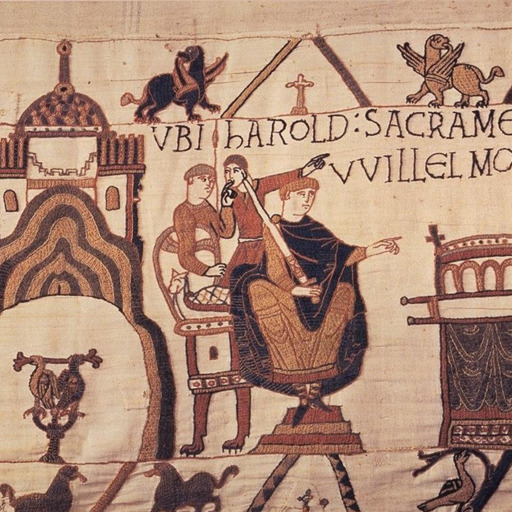 VBI hAROLD: SACRAME
VVILLELMO